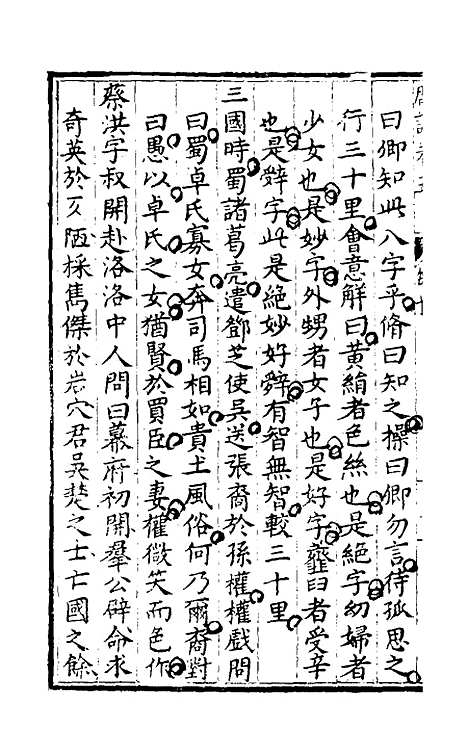 曰卿知此八字乎脩曰知之操曰卿勿言待孤思之
行三十里會意解曰黃絹者色絲也是絕字幼婦者
少女也是妙字外甥者女子也是好字虀臼者受辛
也是辤字此是絕妙好辤有智無智較三十里
三國時蜀諸葛亮遣鄧芝使吳送張裔於孫權權戲問
曰蜀卓氏寡女奔司馬相如貴土風俗何乃爾裔對
曰愚以卓氏之女猶賢於買臣之妻權微笑而色作
蔡洪字叔開赴洛洛中人問曰幕府初開羣公辟命求
奇英於仄陋採雋傑於岩穴君吳楚之士亡國之餘